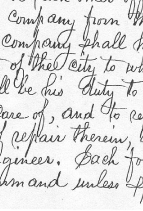 company from th
company shall h
of the city to wh
ll be his duty to
are of, and to re
f repair therein,
gineer. Each fo
mand unless